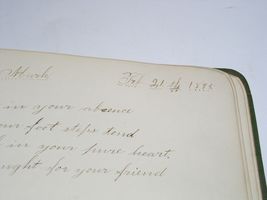 Feb 21st 1885
in your absence
foot steps tend
in your pure heart.
for your friend